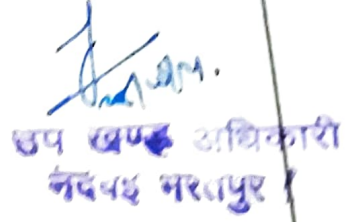 उप खण्ड अधिकारी
नदबई भरतपुर